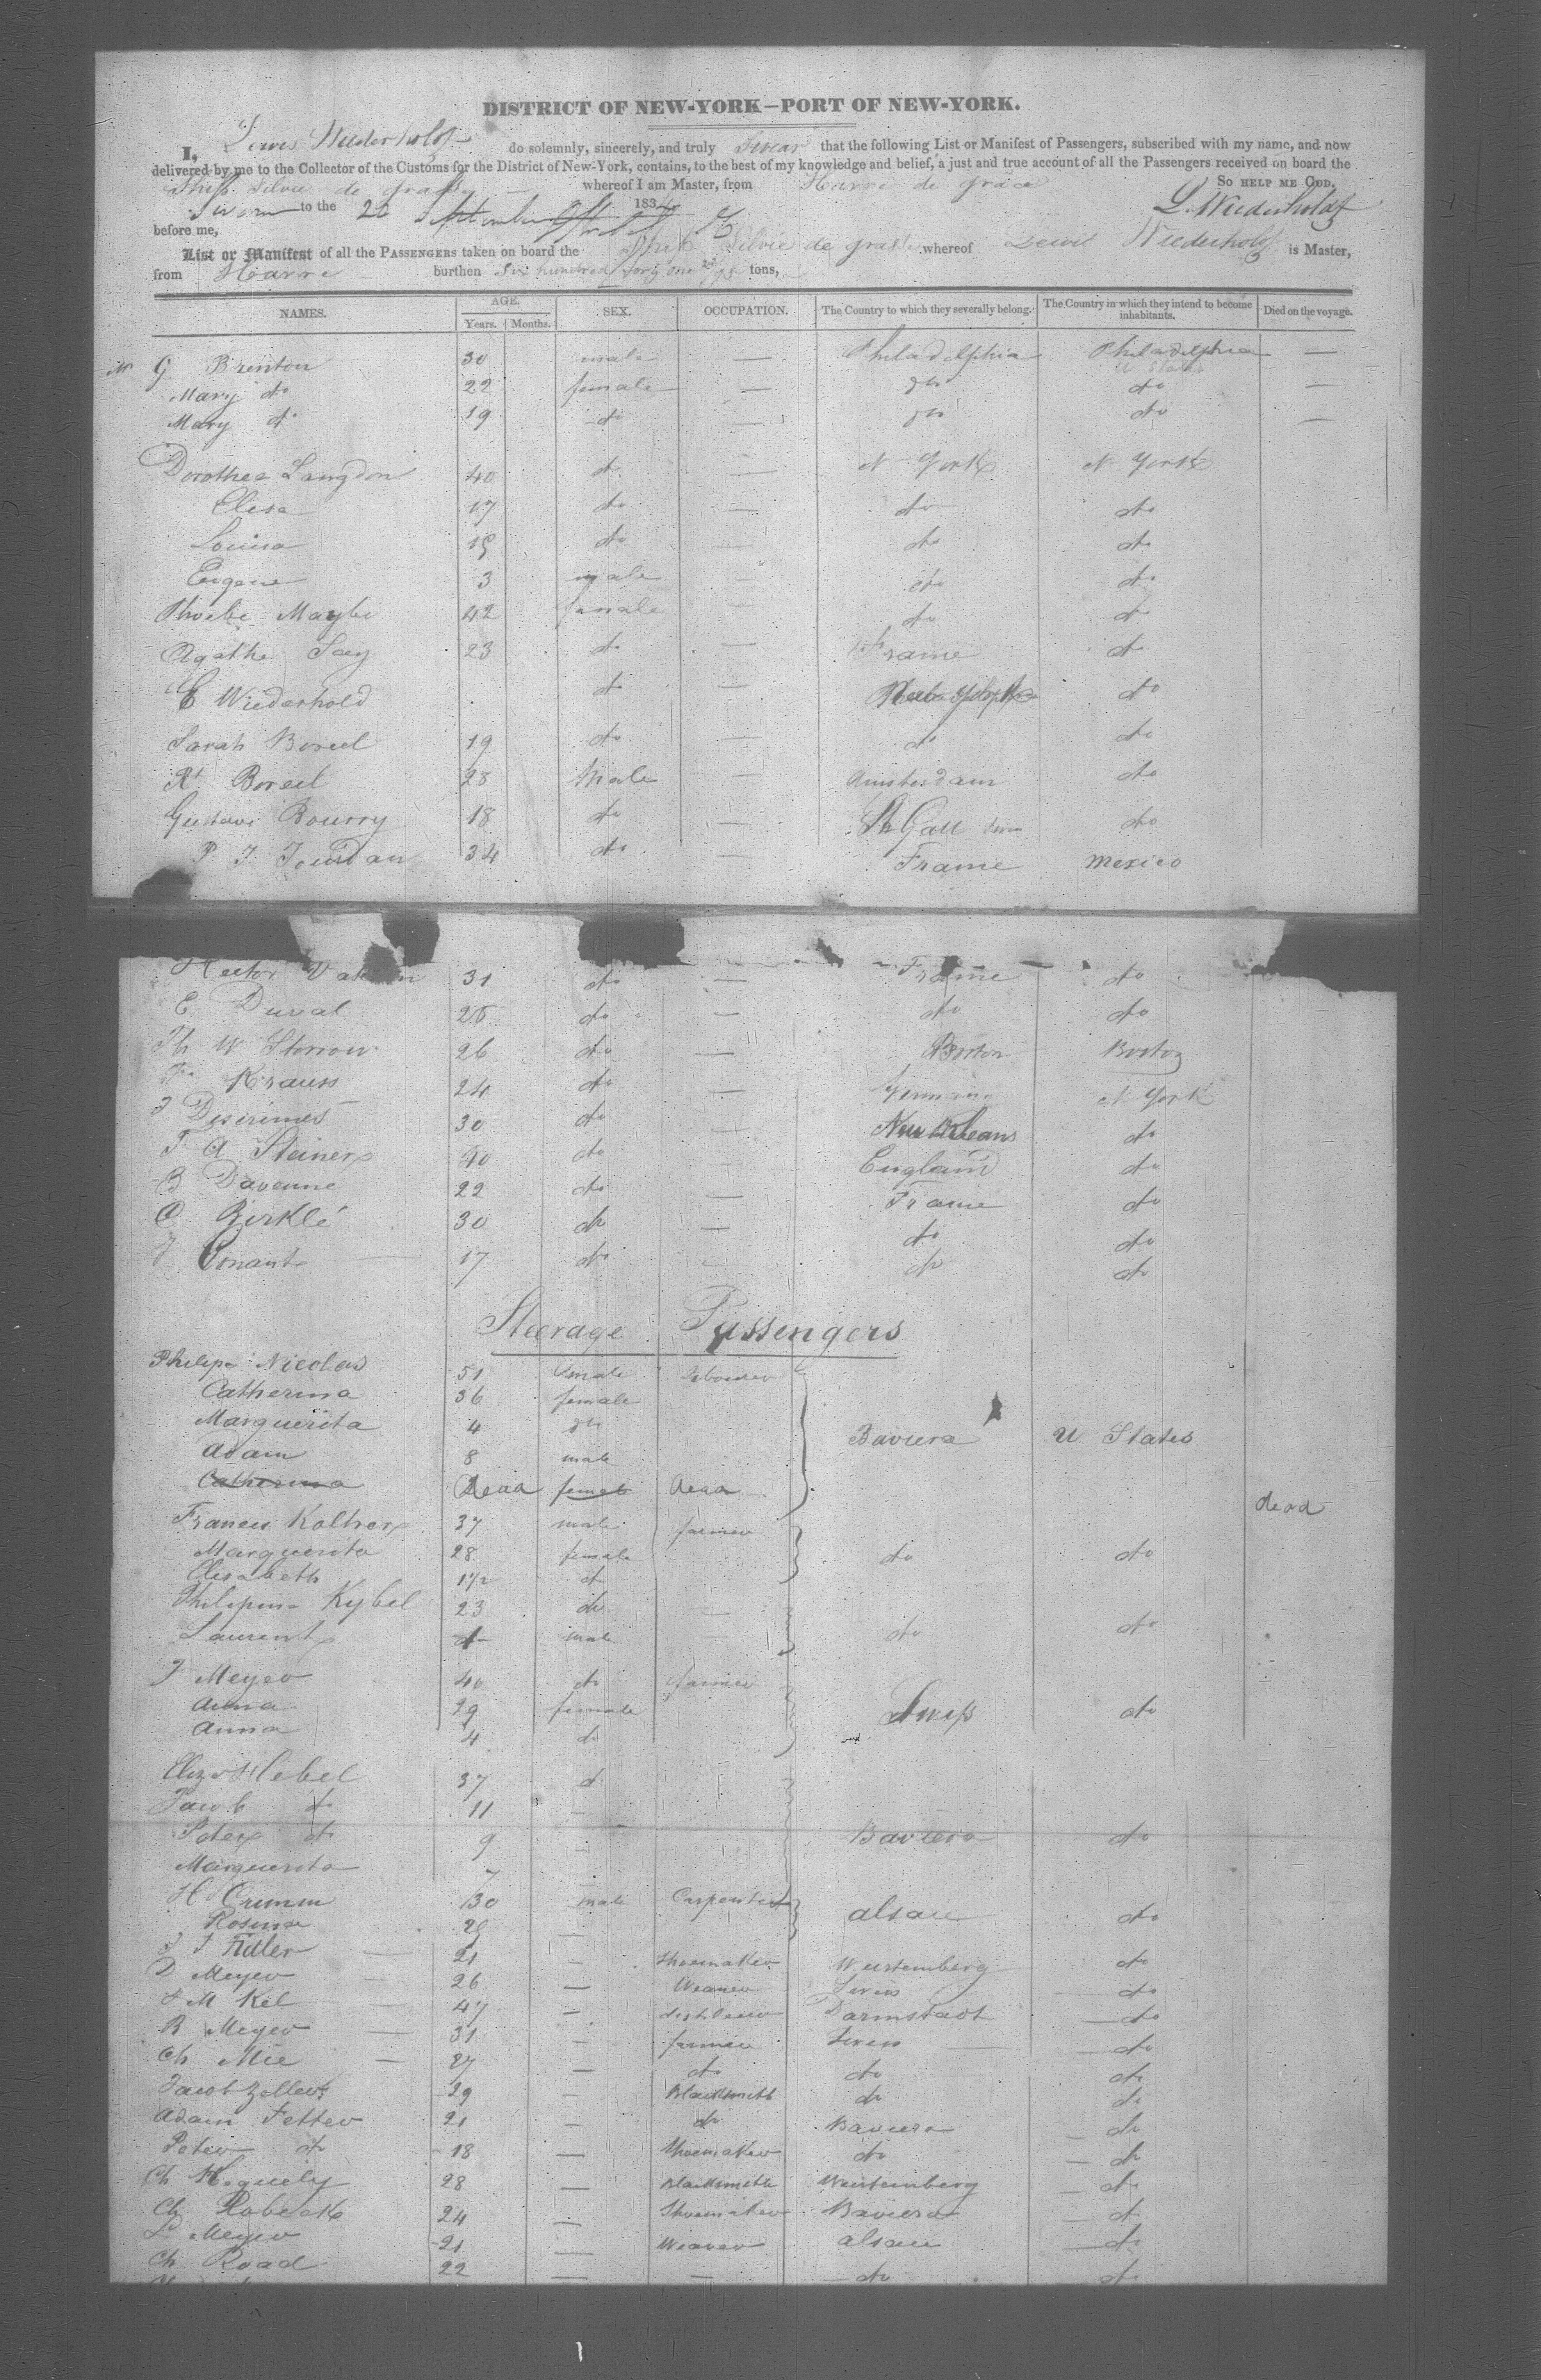 DISTRICT OF NEW-YORK—PORT OF NEW-YORK.
I, Lewis Wiederholdt do solemnly, sincerely, and truly Swear that the following List or Manifest of Passengers, subscribed with my name, and now
delivered by me to the Collector of the Customs for the District of New-York, contains, to the best of my knowledge and belief, a just and true account of all the Passengers received on board the
Ship Silvie de Grasse whereof I am Master, from Havre de Grace So HELP ME GOD.
Sworn to the 26 September 1834 L. Wiederholdt
before me,
List or Manifest of all the PASSENGERS taken on board the Ship Silvie de Grasse whereof Lewis Wiederholdt is Master,
from Havre burthen Six hundred forty one tons,
NAMES. AGE. Years. Months. SEX. OCCUPATION. The Country to which they severally belong. The Country in which they intend to become inhabitants. Died on the voyage.
Mr G Brenton 30 male — Philadelphia Philadelphia —
U States
Mary do 22 female — do do —
Mary do 19 do — do do —
Dorothea Langdon 40 do — N York N York
Elisa 17 do — do do
Louisa 15 do — do do
Eugene 3 male — do do
Phoebe Maybe 42 female do do
Agathe Say 23 do — France do
E Wiederhold do — do
Sarah Boreel 19 do — do do
Rt Boreel 28 Male — Amsterdam do
Gustave Bourry 18 do — St Gall do
P J Jourdan 34 do — France Mexico
Hector 31 do — France do
E Duval 25 do — do do
Th W Storrow 26 do — Boston Boston
Krauss 24 do — Germany N York
J 30 do — New Orleans do
F A Steiner 40 do — England do
B Davenne 22 do — France do
C Birklé 30 do — do do
J 17 do — do do
Steerage Passengers
Philipe Nicolas 51 male labourer
Catherina 36 female
Marguerita 4 do Baviera U States
Adam 8 male
Catherina Dead female dead dead
Frances Koltner 37 male farmer
Marguerita 28 female do do
Elisabeth 1 1/2 do
Philipina Kybel 23 do —
Laurent male — do do
J Meyer 40 do farmer
Anna 29 female Swiss do
Anna 4 do
Eliza Hebel 37 do
Jacob do 11 —
Peter do 9 — Baviera do
Marguerita 7 —
H Crumm 30 male Carpenter Alsace do
Rosina 29 —
J J Adler — 21 — Shoemaker Wurtemberg do
D Meyer — 26 — Weaver Swiss do
J M Kel — 47 — distiller Darmstadt do
B Meyer — 31 — farmer Swiss do
Ch Mie — 27 — do do do
Jacob Zeller 29 — Blacksmith do do
Adam Fetter 21 — do Baviera do
Peter do 18 — Shoemaker do do
Ch Hoguely 28 — Blacksmith Wurtemberg do
Ch 24 — Shoemaker Baviera do
L Meyer 21 — Weaver Alsace do
Ch Road 22 — — do do